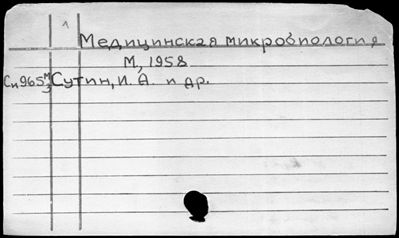 Медицинская микробиология
М., 1958
Сутин, И. А. и др.